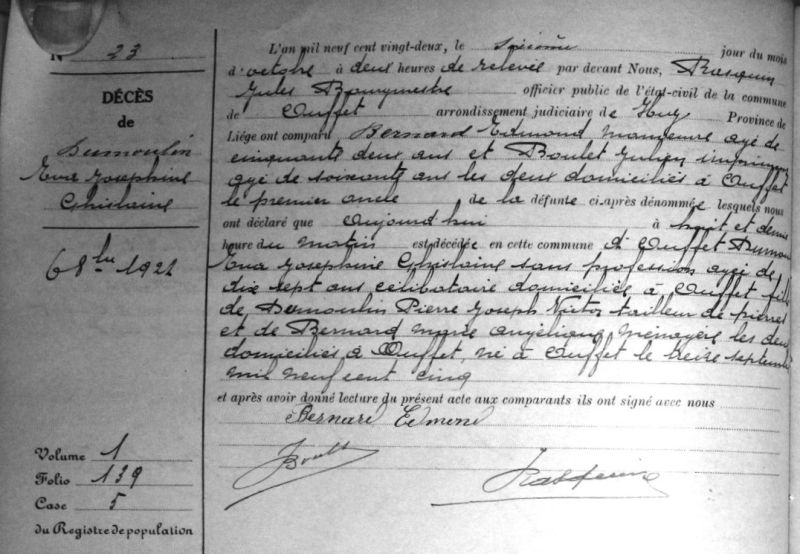 N 23
DÉCÈS
de
Dumoulin
Eva Josephine
Ghislaine
68 1922
Volume 1
Folio 139
Case 5
du Registre de population
L'an mil neuf cent vingt-deux, le sixième jour du mois
d'octobre à deux heures de relevée par devant Nous, Rasquin
Jules Bourgmestre officier public de l'état-civil de la commune
de Ouffet arrondissement judiciaire de Huy Province de
Liége ont comparu Bernard Edmond manoeuvre agé de
cinquante deux ans et Boulet Julien
agé de soixante ans les deux domiciliés à Ouffet
le premier oncle de la défunte ci-après dénommée lesquels nous
ont déclaré que aujourd'hui à huit et demie
heure du matin est décédée en cette commune d'Ouffet Dumoulin
Eva Josephine Ghislaine sans profession agée de
dix sept ans célibataire domiciliée à Ouffet fille
de Dumoulin Pierre Joseph Victor tailleur de pierres
et de Bernard Marie Angélique ménagère les deux
domiciliés à Ouffet, né à Ouffet le treize septembre
mil neuf cent cinq
et après avoir donné lecture du présent acte aux comparants ils ont signé avec nous
Bernard Edmond
Boulet
Rasquin